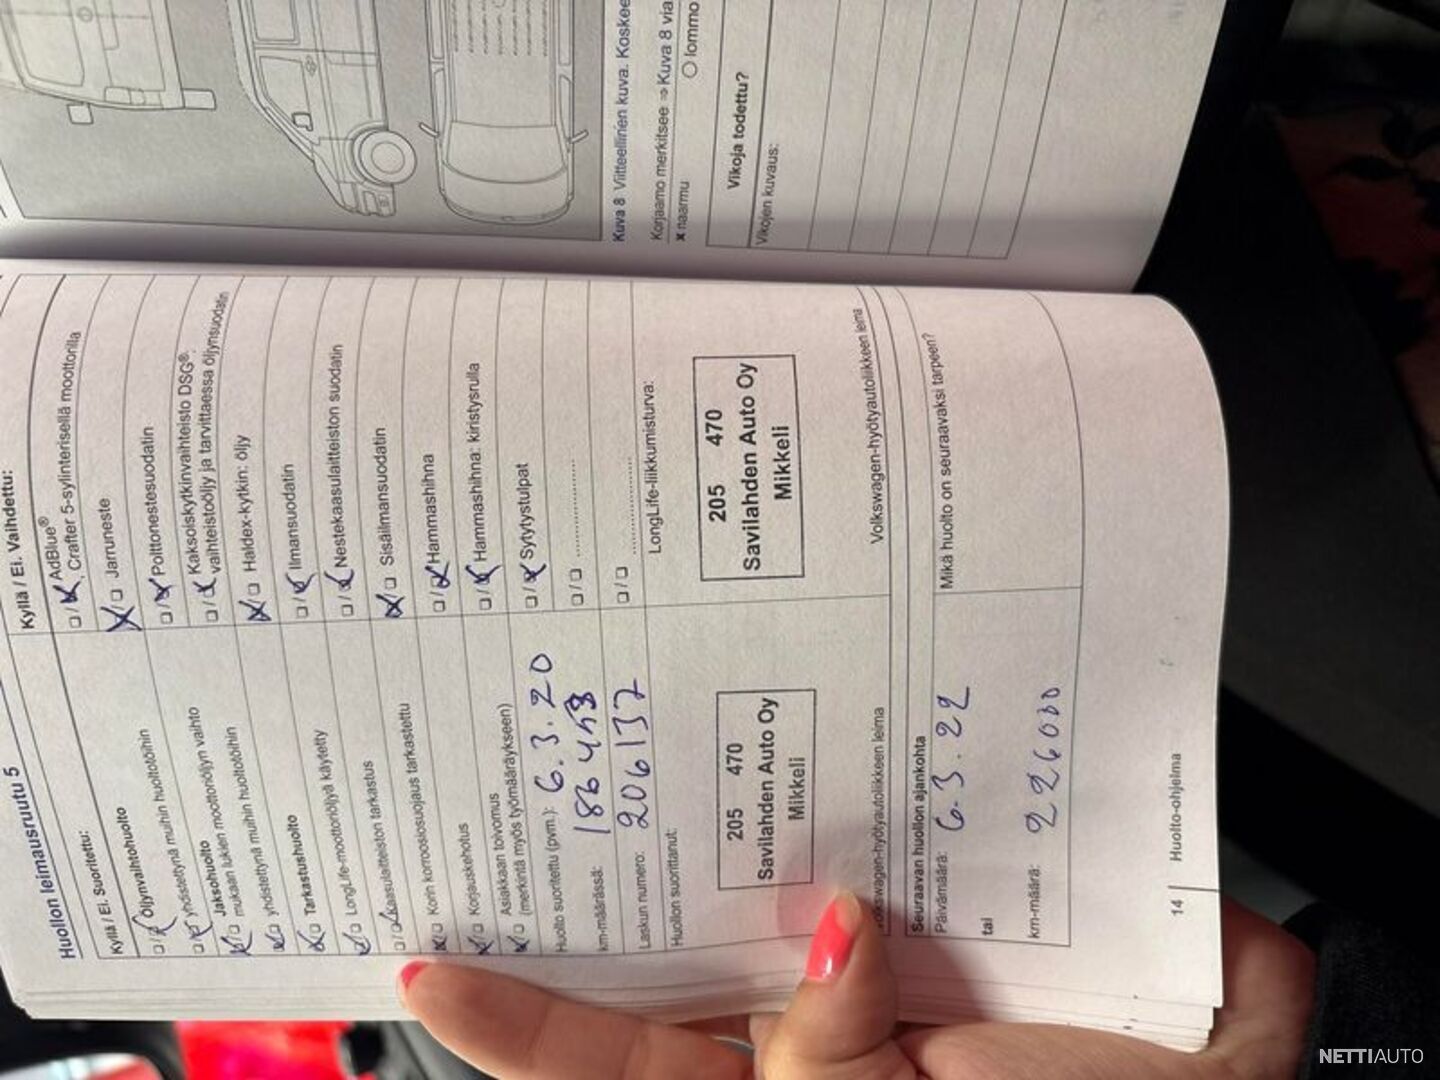 Huollon leimausruutu 5
Kyllä / Ei. Suoritettu:
Öljynvaihtohuolto
yhdistettynä muihin huoltotöihin
yhdistettynä muihin huoltotöihin
Jaksohuolto
mukaan lukien moottoriöljyn vaihto
yhdistettynä muihin huoltotöihin
Tarkastushuolto
LongLife-moottoriöljyä käytetty
Kaasulaitteiston tarkastus
Korin korroosiosuojaus tarkastettu
Korjauskehotus
Asiakkaan toivomus
(merkintä myös työmääräykseen)
Huolto suoritettu (pvm.): 6.3.20
km-määrässä: 186458
Laskun numero: 206137
Huollon suorittanut:
205 470
Savilahden Auto Oy
Mikkeli
Volkswagen-hyötyautoliikkeen leima
Kyllä / Ei. Vaihdettu:
AdBlue®
Crafter 5-sylinterisellä moottorilla
Jarruneste
Polttonestesuodatin
Kaksoiskytkinvaihteisto DSG®:
vaihteistoöljy ja tarvittaessa öljynsuodatin
Haldex-kytkin: öljy
Ilmansuodatin
Nestekaasulaitteiston suodatin
Sisäilmansuodatin
Hammashihna
Hammashihna: kiristysrulla
Sytytystulpat
LongLife-liikkumisturva:
205 470
Savilahden Auto Oy
Mikkeli
Volkswagen-hyötyautoliikkeen leima
Seuraavan huollon ajankohta
Päivämäärä: 6.3.22
tai
km-määrä: 226000
Mikä huolto on seuraavaksi tarpeen?
14 Huolto-ohjelma
Kuva 8 Viitteellinen kuva. Koskee
Korjaamo merkitsee ⇒ Kuva 8 via
x naarmu O lommo
Vikoja todettu?
Vikojen kuvaus:
NETTIAUTO